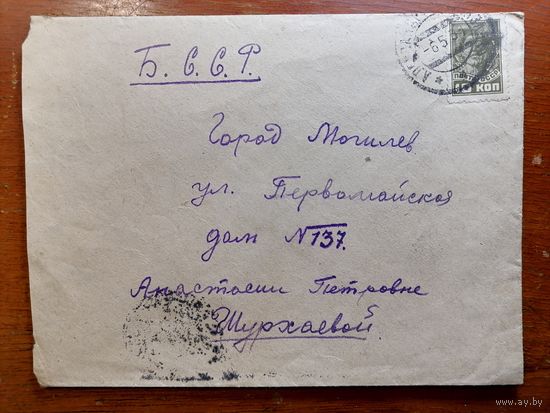 Б. С. С. Р.
Город Могилев
ул. Первомайская
дом №137.
Анастасии Петровне
Шурхаевой.
КОП
www.ay.by